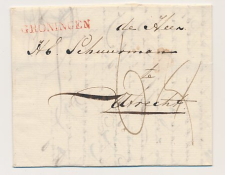 GRONINGEN
de Heer
Hb Schuurman
te
Utrecht